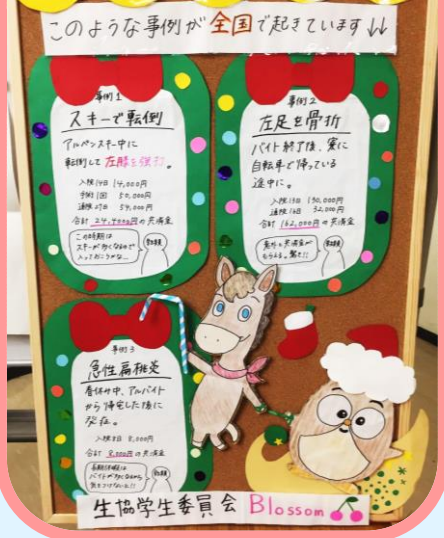 このような事例が全国で起きています↓↓
事例1
スキーで転倒
アルペンスキー中に
転倒して左膝を強打。
入院14日
手術1回 50,000円
通院27日 54,000円
の共済金
この時期は
スキーが
事例2
左足を骨折
バイト終了後、寮に
自転車で帰っている
途中に。
入院13日 130,000円
通院16日 32,000円
合計 162,000円の共済金
意外と共済金が
もらえる。驚き!!
事例3
急性扁桃炎
春休み中、アルバイト
から帰宅した後に
発症。
入院8日 8,000円
合計 8,000円の共済金
長期休暇は
バイトが
生協学生委員会 Blossom